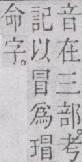 音在三部考
記以冒爲瑁
命字。